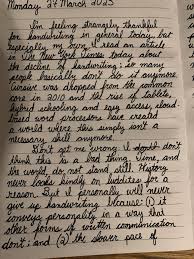 Monday 27 March 2023
I'm feeling strangely thankful
for handwriting in general today, but
especially my own. I read an article
in The New York Times today about
the decline of handwriting: so many
people basically don't do it anymore.
Cursive was dropped from the common
core in 2010 and the rise of tablets,
hybrid schooling and easy access, cloud-
based word processors have created
a world where this simply isn't a
necessary skill anymore.
Don't get me wrong: I don't
think this is a bad thing. Time, and
the world, do not stand still. History
never looks kindly on luddites for a
reason. But I personally will never
give up handwriting because: (1) it
conveys personality in a way that
other forms of written communication
don't; and (2) the slower pace of